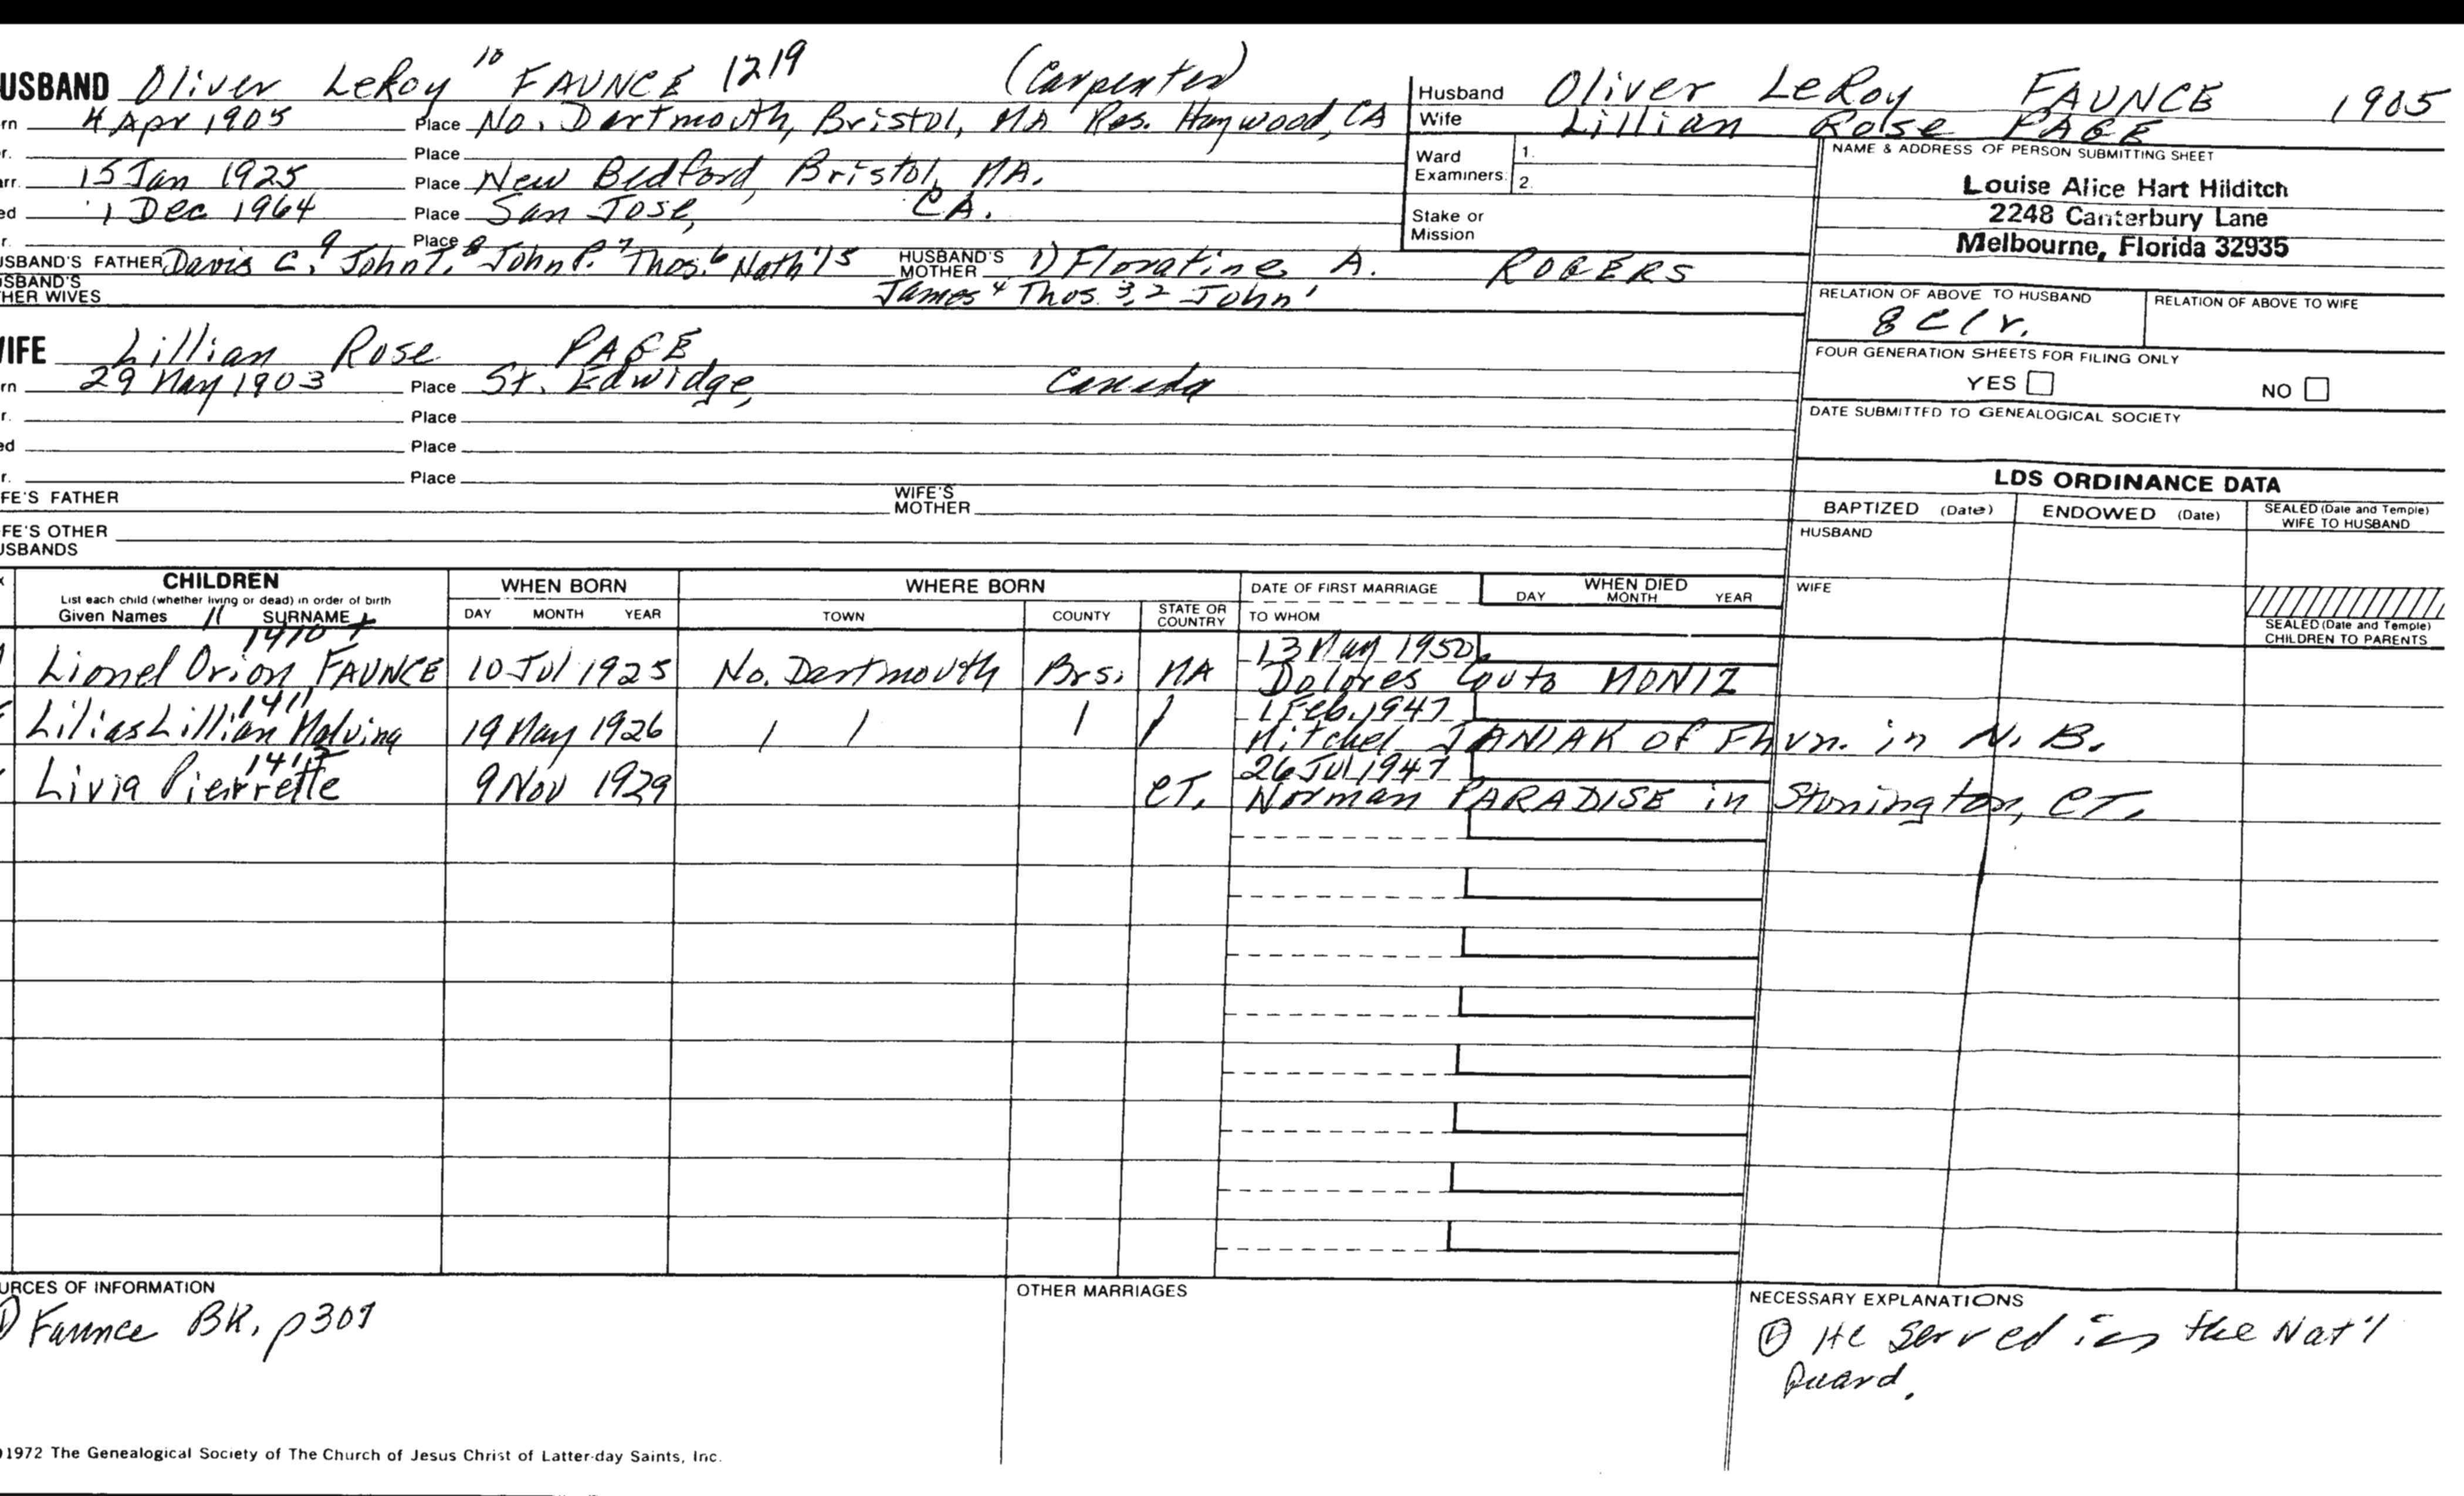 USBAND Oliver LeRoy 10 FAUNCE 1219 (Carpenter)
rn 4 Apr 1905 Place No. Dartmouth, Bristol, MA Res. Haywood, CA
r. Place
arr. 15 Jan 1925 Place New Bedford, Bristol, MA.
ed 1 Dec 1964 Place San Jose, CA.
r. Place
USBAND'S FATHER Davis C.9 John T.8 John P.7 Thos.6 Nath'l5 HUSBAND'S MOTHER 1) Floratine A. ROGERS
USBAND'S HER WIVES James4 Thos.3,2 John1
Husband Oliver LeRoy FAUNCE 1905
Wife Lillian Rose PAGE
Ward Examiners: 1.
2.
Stake or Mission
NAME & ADDRESS OF PERSON SUBMITTING SHEET
Louise Alice Hart Hilditch
2248 Canterbury Lane
Melbourne, Florida 32935
RELATION OF ABOVE TO HUSBAND RELATION OF ABOVE TO WIFE
8 C 1 r.
FOUR GENERATION SHEETS FOR FILING ONLY
YES NO
DATE SUBMITTED TO GENEALOGICAL SOCIETY
WIFE Lillian Rose PAGE
rn 29 May 1903 Place St. Edwidge, Canada
r. Place
ed Place
r. Place
FE'S FATHER WIFE'S MOTHER
FE'S OTHER
USBANDS
LDS ORDINANCE DATA
BAPTIZED (Date) ENDOWED (Date) SEALED (Date and Temple) WIFE TO HUSBAND
HUSBAND
WIFE
SEALED (Date and Temple) CHILDREN TO PARENTS
x CHILDREN WHEN BORN WHERE BORN DATE OF FIRST MARRIAGE WHEN DIED
List each child (whether living or dead) in order of birth
Given Names 11 SURNAME + DAY MONTH YEAR TOWN COUNTY STATE OR COUNTRY TO WHOM DAY MONTH YEAR
1410 + 13 May 1950
Lionel Orion FAUNCE 10 Jul 1925 No. Dartmouth Brs. MA Dolores Couto MONIZ
1411 1 Feb. 1947
Lilias Lillian Malvina 19 May 1926 / / / / Mitchel JANIAK of Fhvn. in N. B.
1412 26 Jul 1947
Livia Pierrette 9 Nov 1929 CT. Norman PARADISE in Stonington, CT.
URCES OF INFORMATION OTHER MARRIAGES NECESSARY EXPLANATIONS
1) Faunce BK, p309
① He served in the Nat'l
Guard.
1972 The Genealogical Society of The Church of Jesus Christ of Latter-day Saints, Inc.